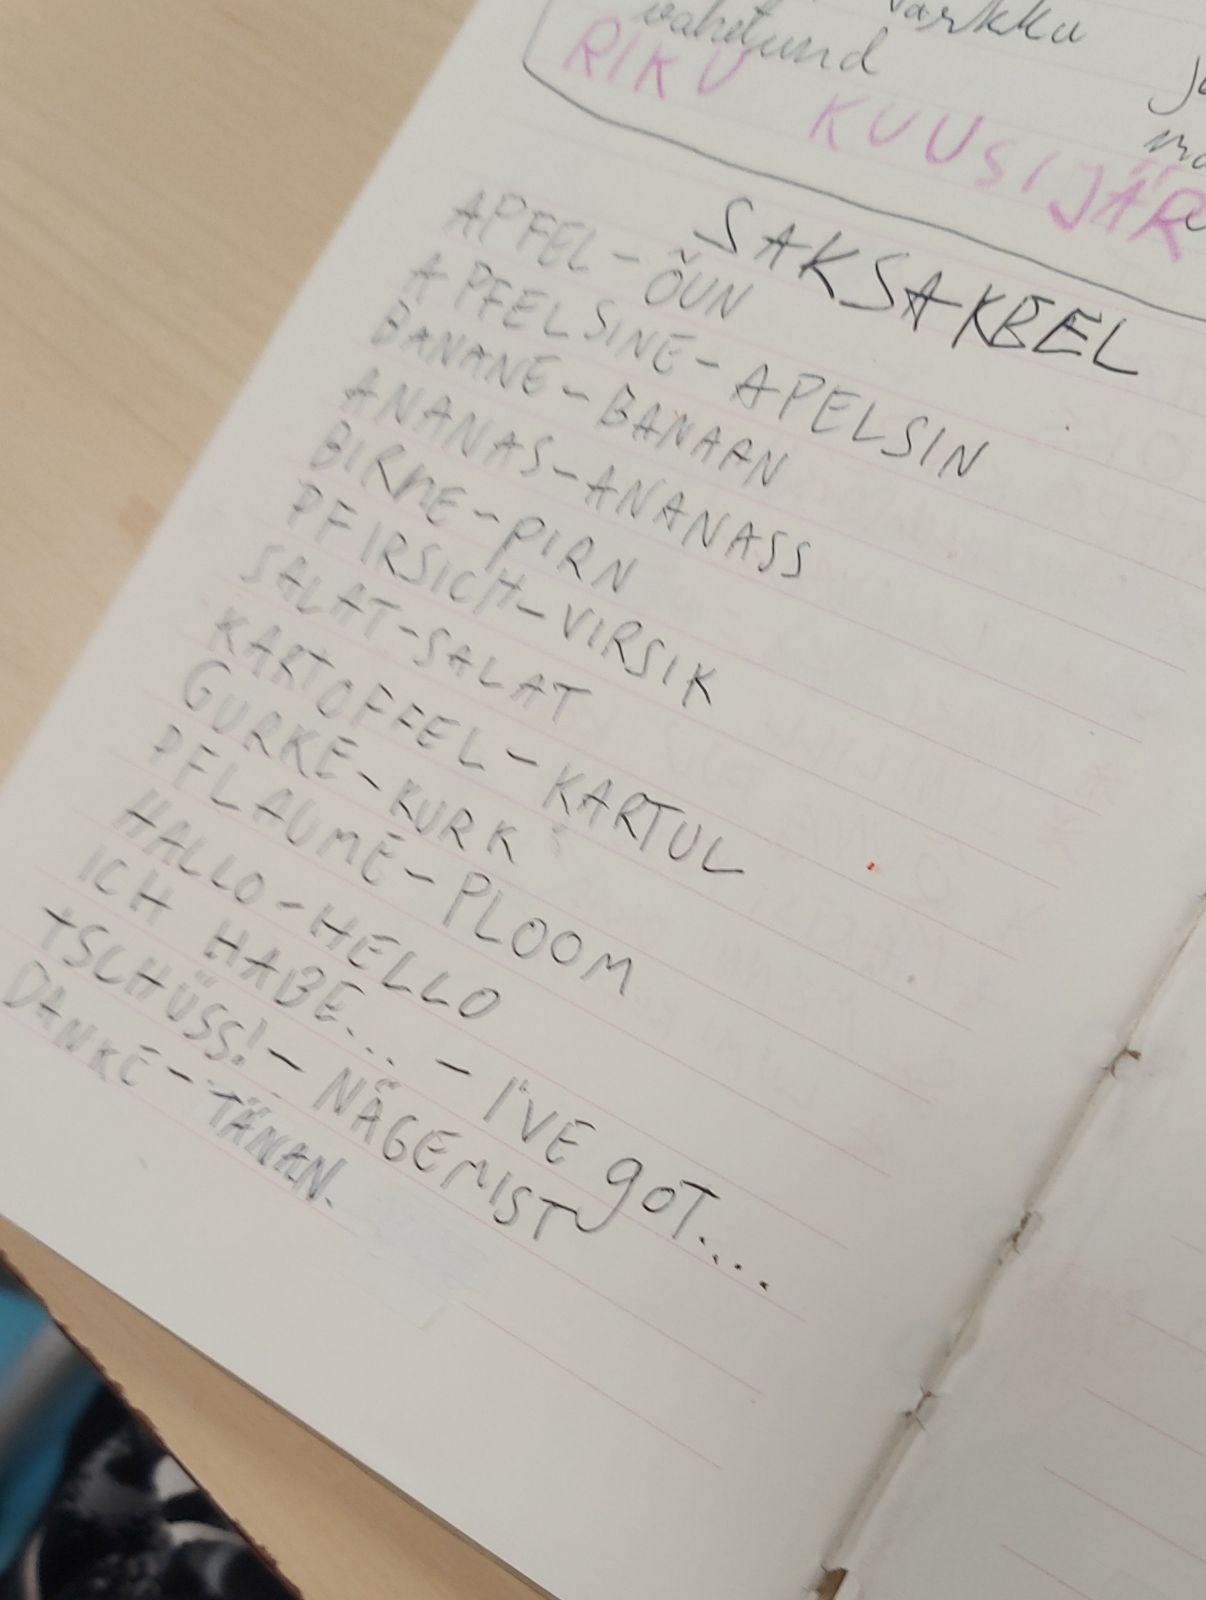 varkku
vahetund
RIKU KUUSIJÄR
SAKSAKBEL
APFEL - ÕUN
APFELSINE - APELSIN
BANANE - BANAAN
ANANAS - ANANASS
BIRNE - PIRN
PFIRSICH - VIRSIK
SALAT - SALAT
KARTOFFEL - KARTUL
GURKE - KURK
PFLAUME - PLOOM
HALLO - HELLO
ICH HABE... - I'VE GOT....
TSCHÜSS! - NÄGEMIST
DANKE - TÄNAN.